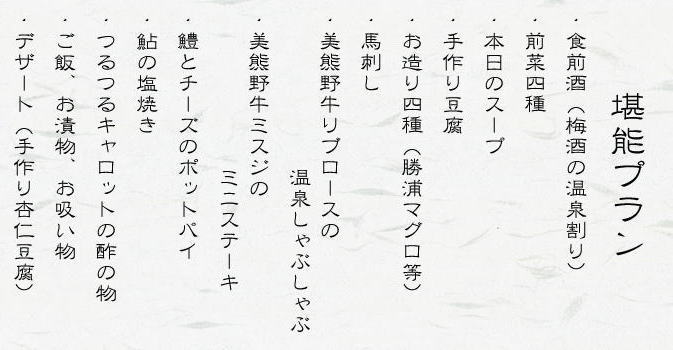 堪能プラン
・食前酒（梅酒の温泉割り）
・前菜四種
・本日のスープ
・手作り豆腐
・お造り四種（勝浦マグロ等）
・馬刺し
・美熊野牛リブロースの
温泉しゃぶしゃぶ
・美熊野牛ミスジの
ミニステーキ
・鱧とチーズのポットパイ
・鮎の塩焼き
・つるつるキャロットの酢の物
・ご飯、お漬物、お吸い物
・デザート（手作り杏仁豆腐）